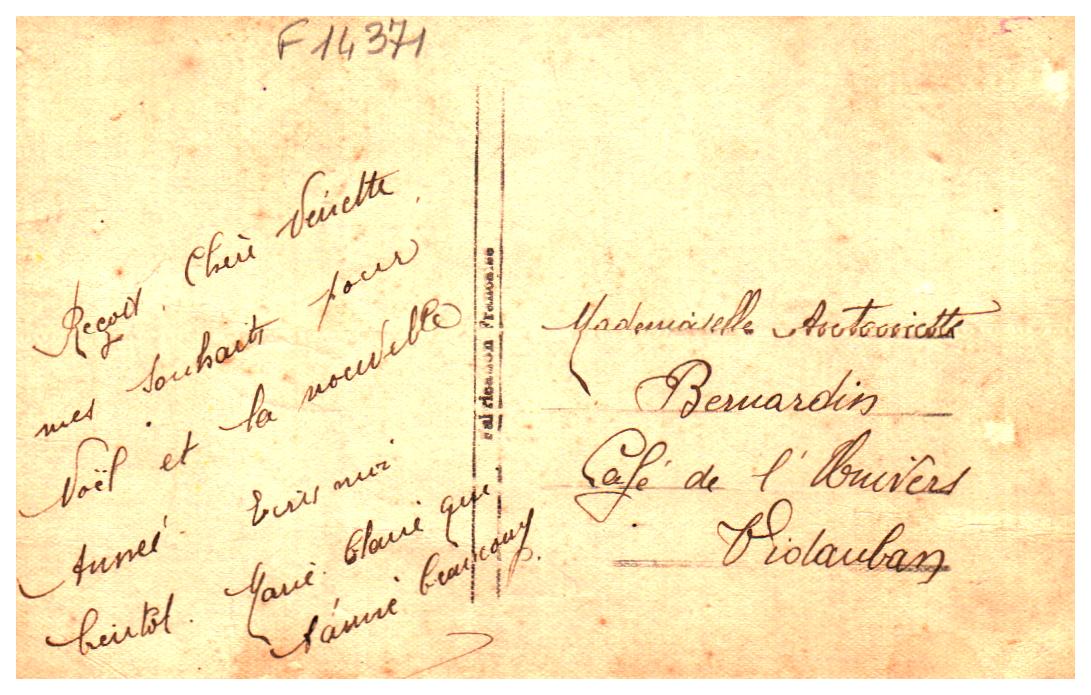 F 14371
Reçois Chère Ninette
mes souhaits pour
Noël et la nouvelle
Année. Ecris moi
bientôt. Marie Claire que
t'aime beaucoup.
Fabrication Française
Mademoiselle Antoinette
Bernardin
Café de l'Univers
Vidauban